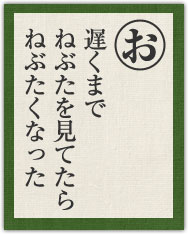 お
遅くまで
ねぶたを見てたら
ねぶたくなった